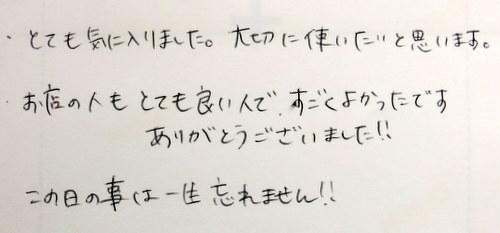 ・とても気に入りました。大切に使いたいと思います。
・お店の人もとても良い人で、すごくよかったです
ありがとうございました!!
この日の事は一生忘れません!!